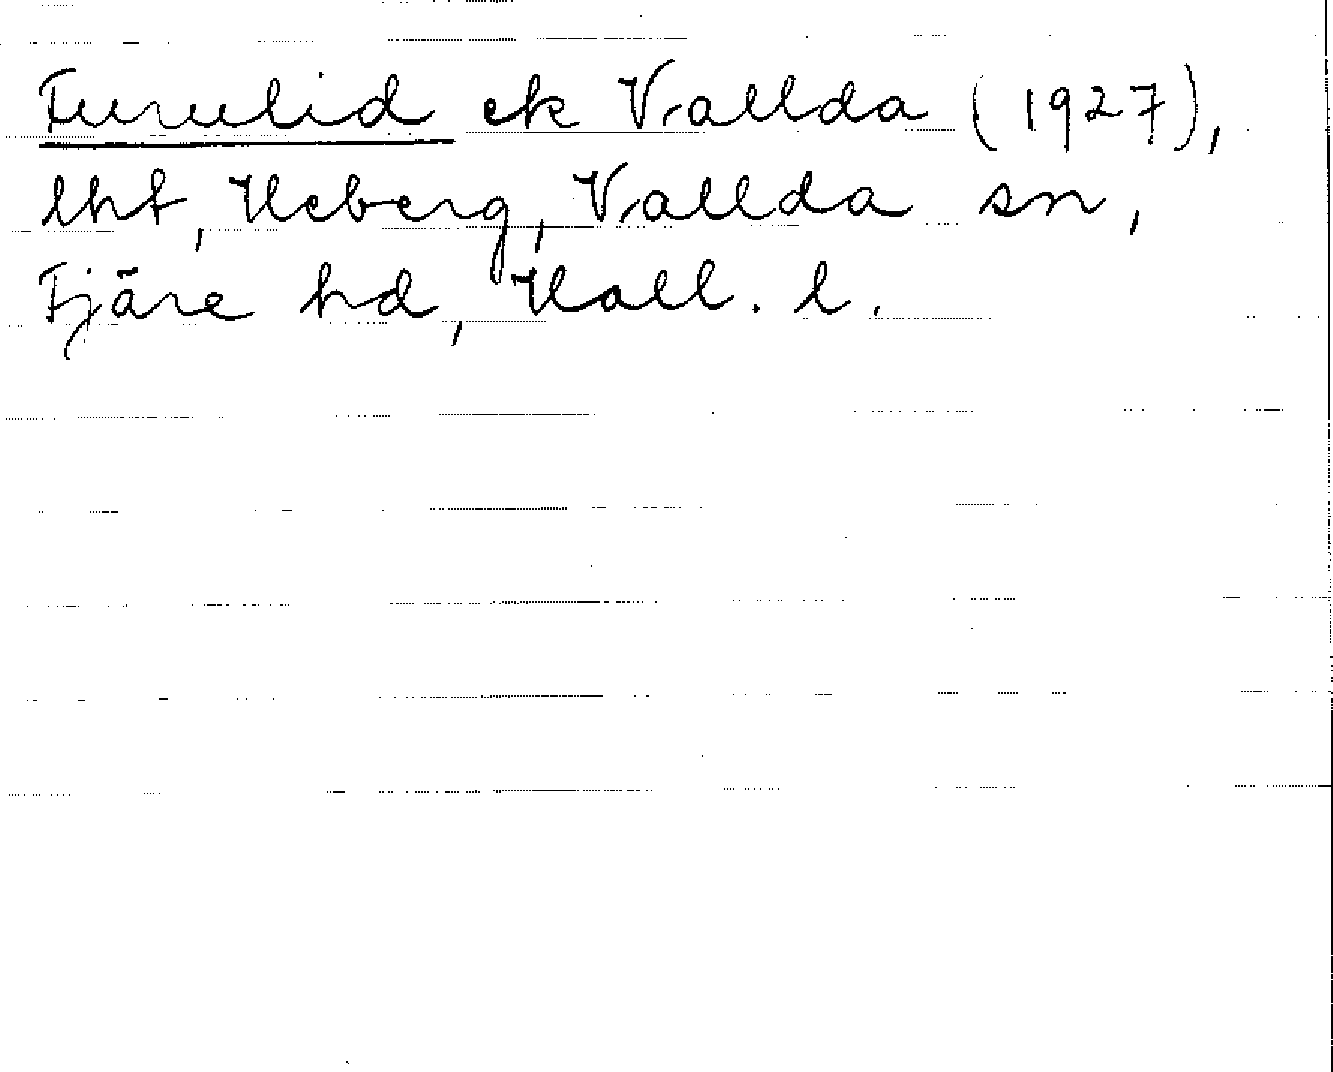 Furulid ek Vallda (1927),
lht, Heberg, Vallda sn,
Fjäre hd, Hall. l.